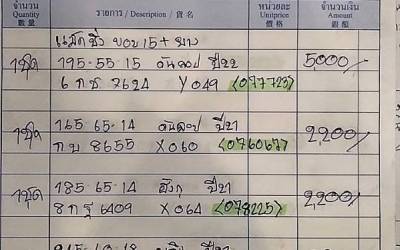 จำนวน Quantity 數量 รายการ / Description / 貨名 หน่วยละ Unitprice 價格 จำนวนเงิน Amount 銀額
แม็กซิ่ง ขอบ 15 + ยาง
1ชุด 195-55-15 ดันลอป ปี22 5,000/-
6 กช 7624 YO49 <077723>
1ชุด 165-65-14 ดันลอป ปี21 2,200/-
กบ 8655 XO60 <076067>
1ชุด 185-65-14 ปี21 2,200/-
8 กฐ 6409 XO64 <078225>